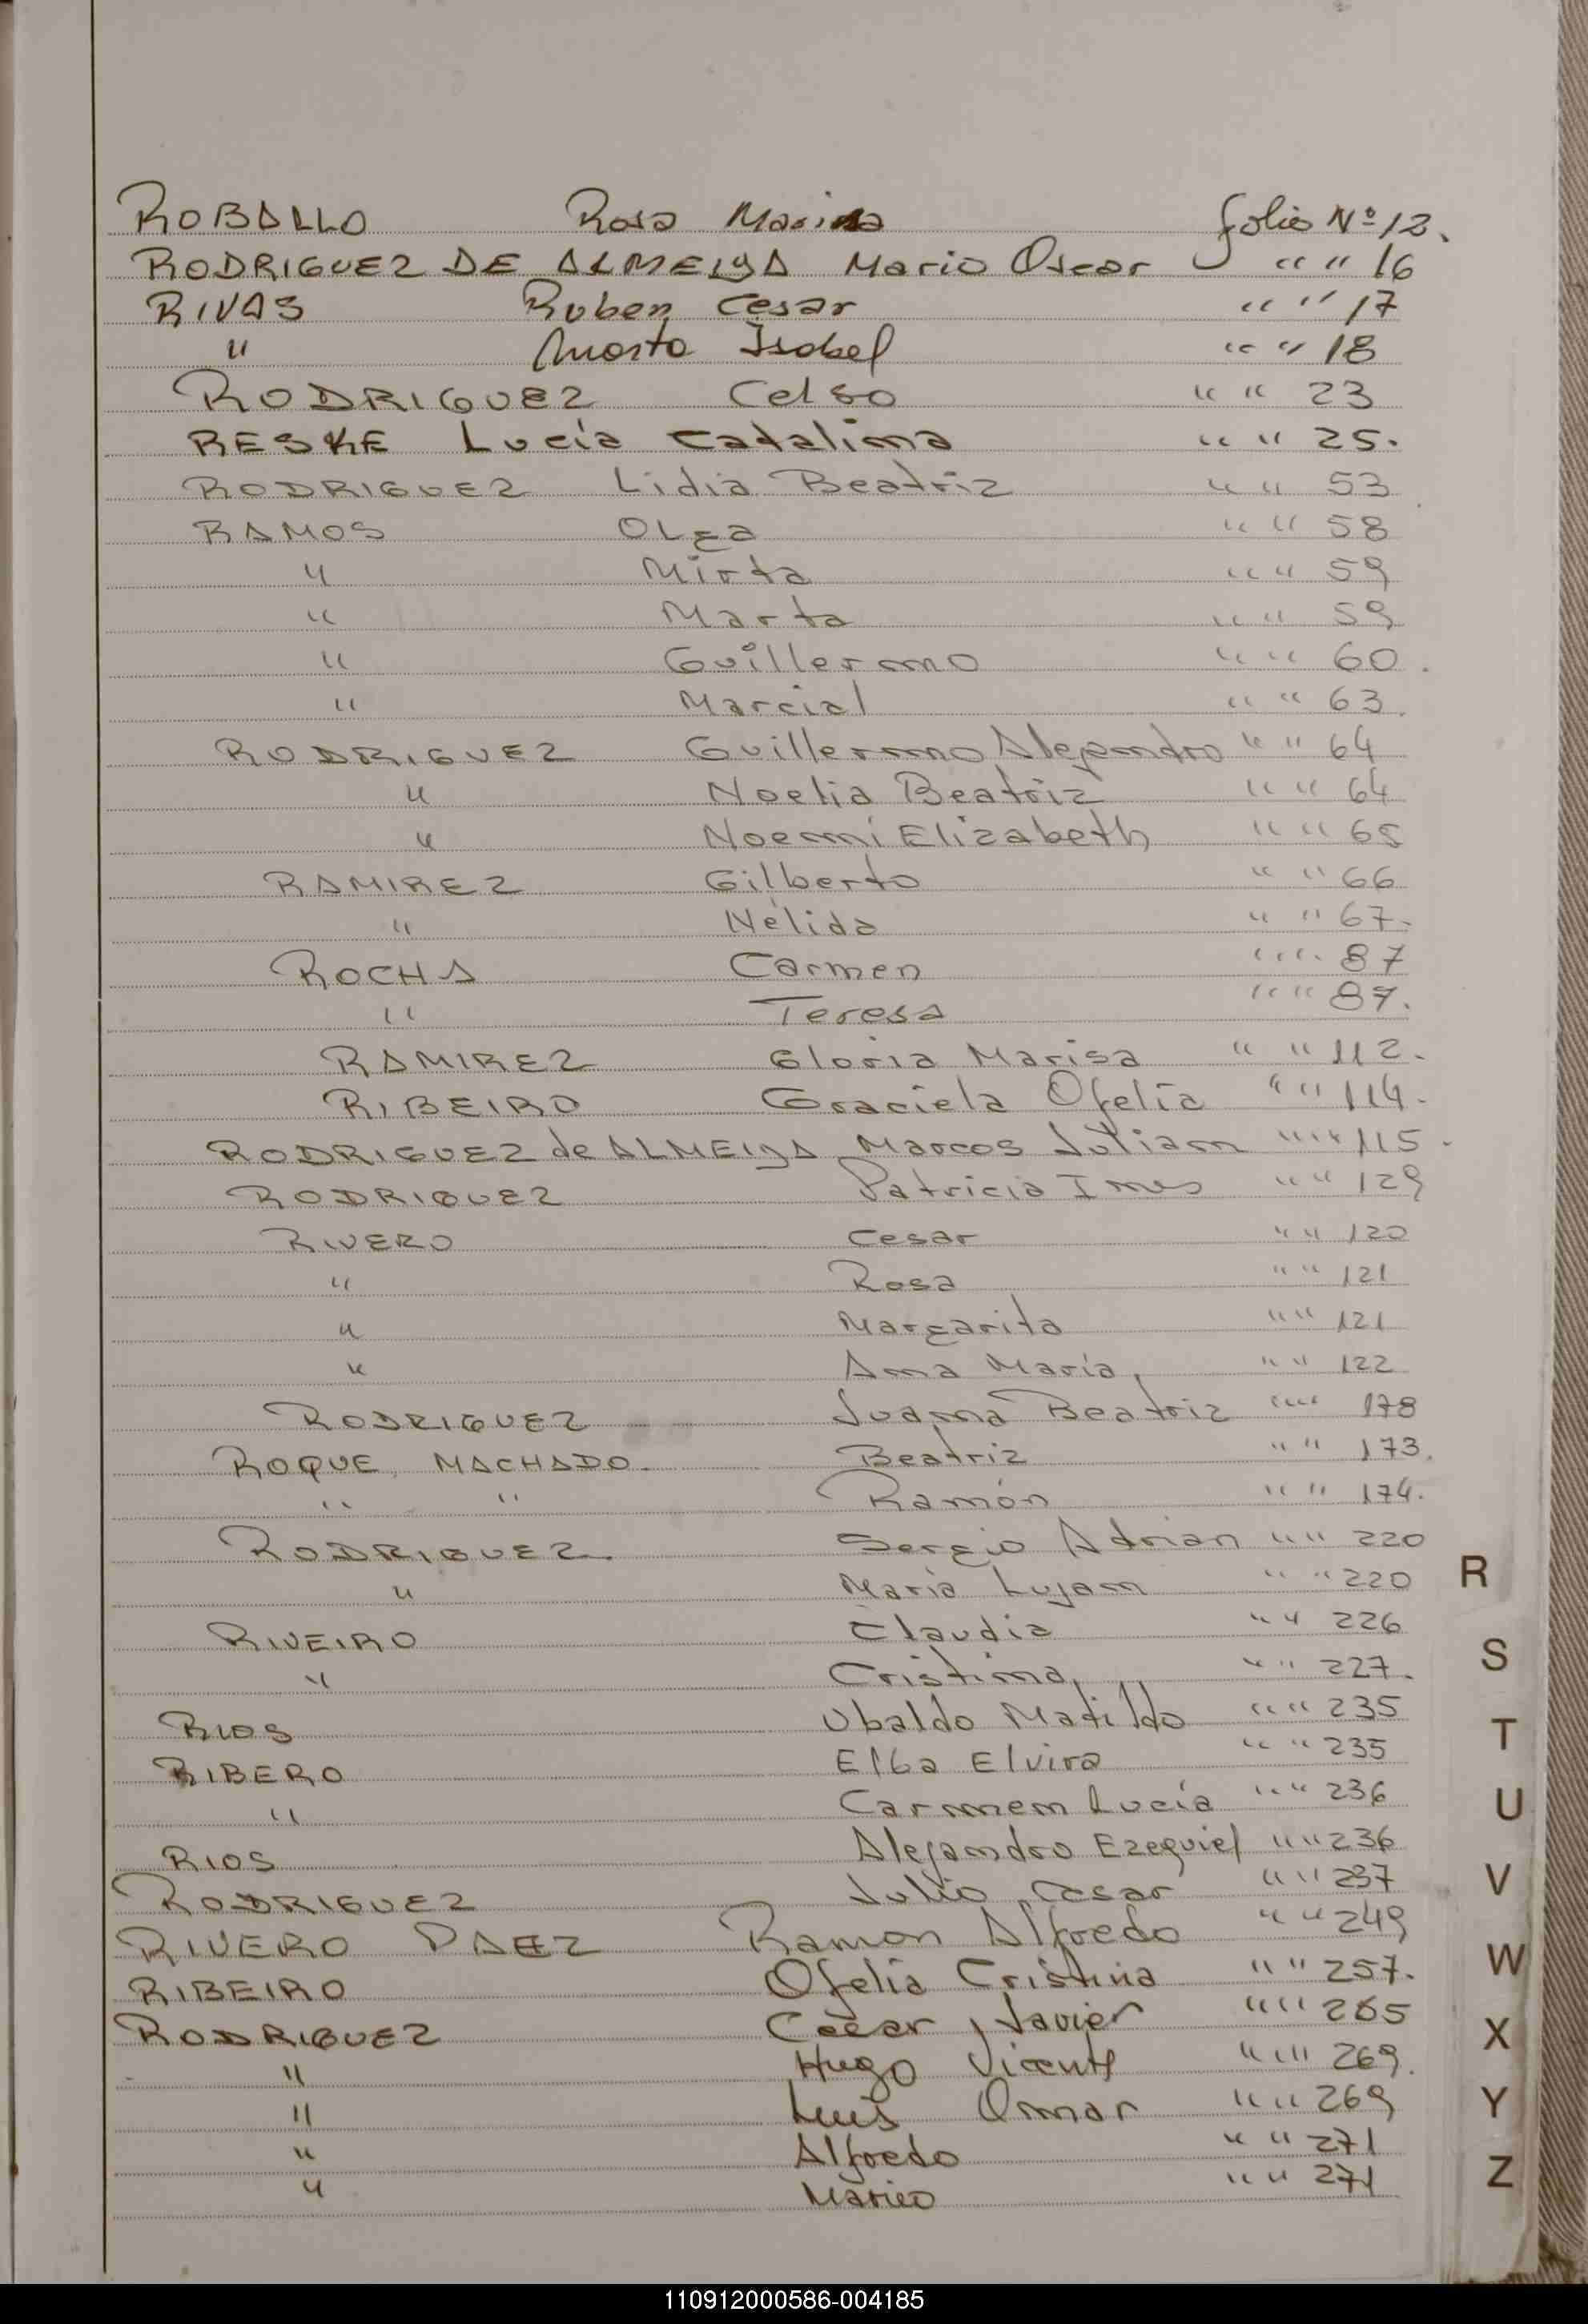 ROBALLO Rosa Marina folio Nº 12.
RODRIGUEZ DE ALMEIDA Mario Oscar " " 16
RIVAS Ruben Cesar " " 17
" Marta Isabel " " 18
RODRIGUEZ Celso " " 23
RESKE Lucía Catalina " " 25.
RODRIGUEZ Lidia Beatriz " " 53
RAMOS OLga " " 58
" Mirta " " 59
" Marta " " 59
" Guillermo " " 60.
" Marcial " " 63.
RODRIGUEZ Guillermo Alejandro " " 64
" Noelia Beatriz " " 64
" Noemí Elizabeth " " 65
RAMIREZ Gilberto " " 66
" Nélida " " 67.
ROCHA Carmen " " 87
" Teresa " " 87.
RAMIREZ Gloria Marisa " " 112.
RIBEIRO Graciela Ofelia " " 114.
RODRIGUEZ de ALMEIDA Marcos Julian " " 115.
RODRIGUEZ Patricia Ines " " 129
RIVERO Cesar " " 120
" Rosa " " 121
" Margarita " " 121
" Ana María " " 122
RODRIGUEZ Juana Beatriz " " 178
ROQUE MACHADO. Beatriz " " 173.
" " Ramón " " 174.
RODRIGUEZ Sergio Adrian " " 220
" María Lujan " " 220
RIVEIRO Claudia " " 226
" Cristina " " 227.
RIOS Ubaldo Matildo " " 235
RIBERO Elba Elvira " " 235
" Carmen Lucía " " 236
RIOS Alejandro Ezequiel " " 236
RODRIGUEZ Julio Cesar " " 237
RIVERO PAEZ Ramon Alfredo " " 249
RIBEIRO Ofelia Cristina " " 257.
RODRIGUEZ César Javier " " 265
" Hugo Vicente " " 269.
" Luis Omar " " 269
" Alfredo " " 271
" Mario " " 271
R
S
T
U
V
W
X
Y
Z
110912000586-004185